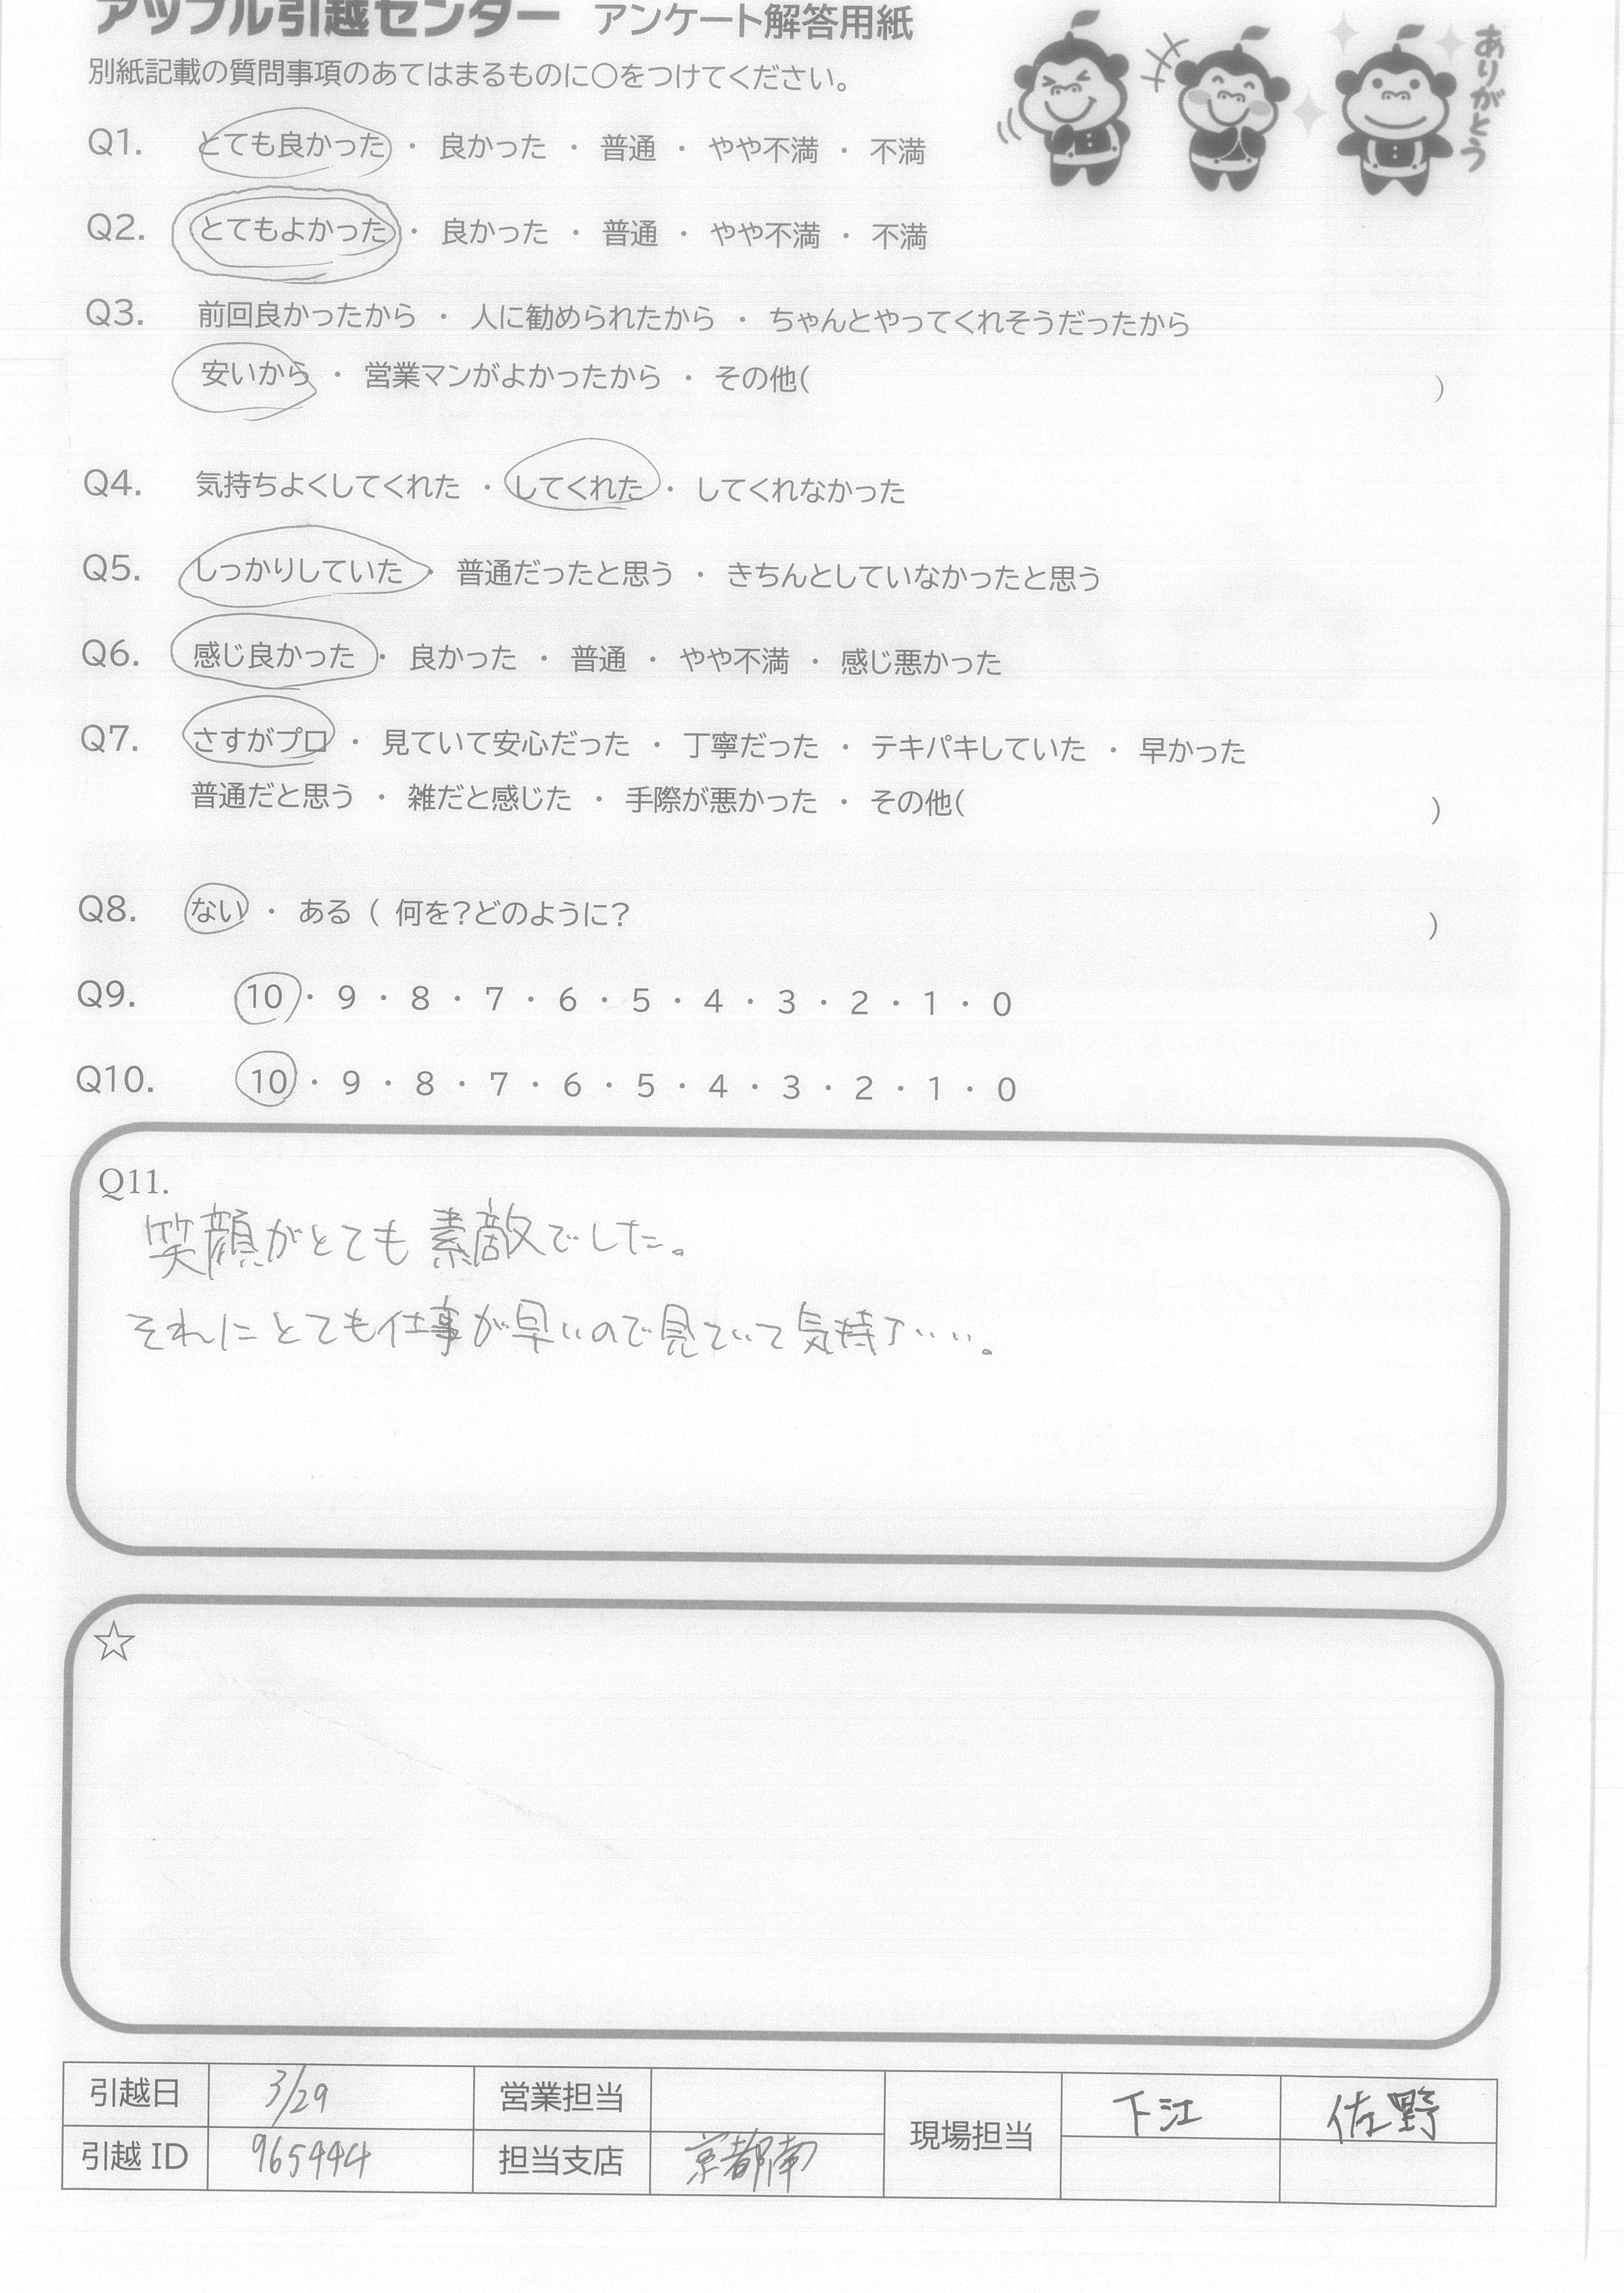 アップル引越センター アンケート解答用紙
ありがとう
別紙記載の質問事項のあてはまるものに〇をつけてください。
Q1. とても良かった ・ 良かった ・ 普通 ・ やや不満 ・ 不満
Q2. とてもよかった ・ 良かった ・ 普通 ・ やや不満 ・ 不満
Q3. 前回良かったから ・ 人に勧められたから ・ ちゃんとやってくれそうだったから
安いから ・ 営業マンがよかったから ・ その他( )
Q4. 気持ちよくしてくれた ・ してくれた ・ してくれなかった
Q5. しっかりしていた ・ 普通だったと思う ・ きちんとしていなかったと思う
Q6. 感じ良かった ・ 良かった ・ 普通 ・ やや不満 ・ 感じ悪かった
Q7. さすがプロ ・ 見ていて安心だった ・ 丁寧だった ・ テキパキしていた ・ 早かった
普通だと思う ・ 雑だと感じた ・ 手際が悪かった ・ その他( )
Q8. ない ・ ある ( 何を?どのように? )
Q9. 10 ・ 9 ・ 8 ・ 7 ・ 6 ・ 5 ・ 4 ・ 3 ・ 2 ・ 1 ・ 0
Q10. 10 ・ 9 ・ 8 ・ 7 ・ 6 ・ 5 ・ 4 ・ 3 ・ 2 ・ 1 ・ 0
Q11.
笑顔がとても素敵でした。
それにとても仕事が早いので見ていて気持ちいい。
☆
引越日 3/29 営業担当 現場担当 下江 佐野
引越 ID 965444 担当支店 京都南